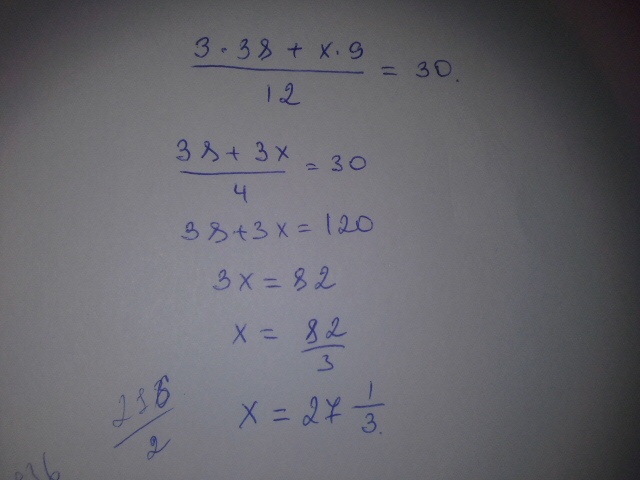 3·38 + x·9 / 12 = 30.
38 + 3x / 4 = 30
38+3x = 120
3x = 82
x = 82/3
x = 27 1/3.